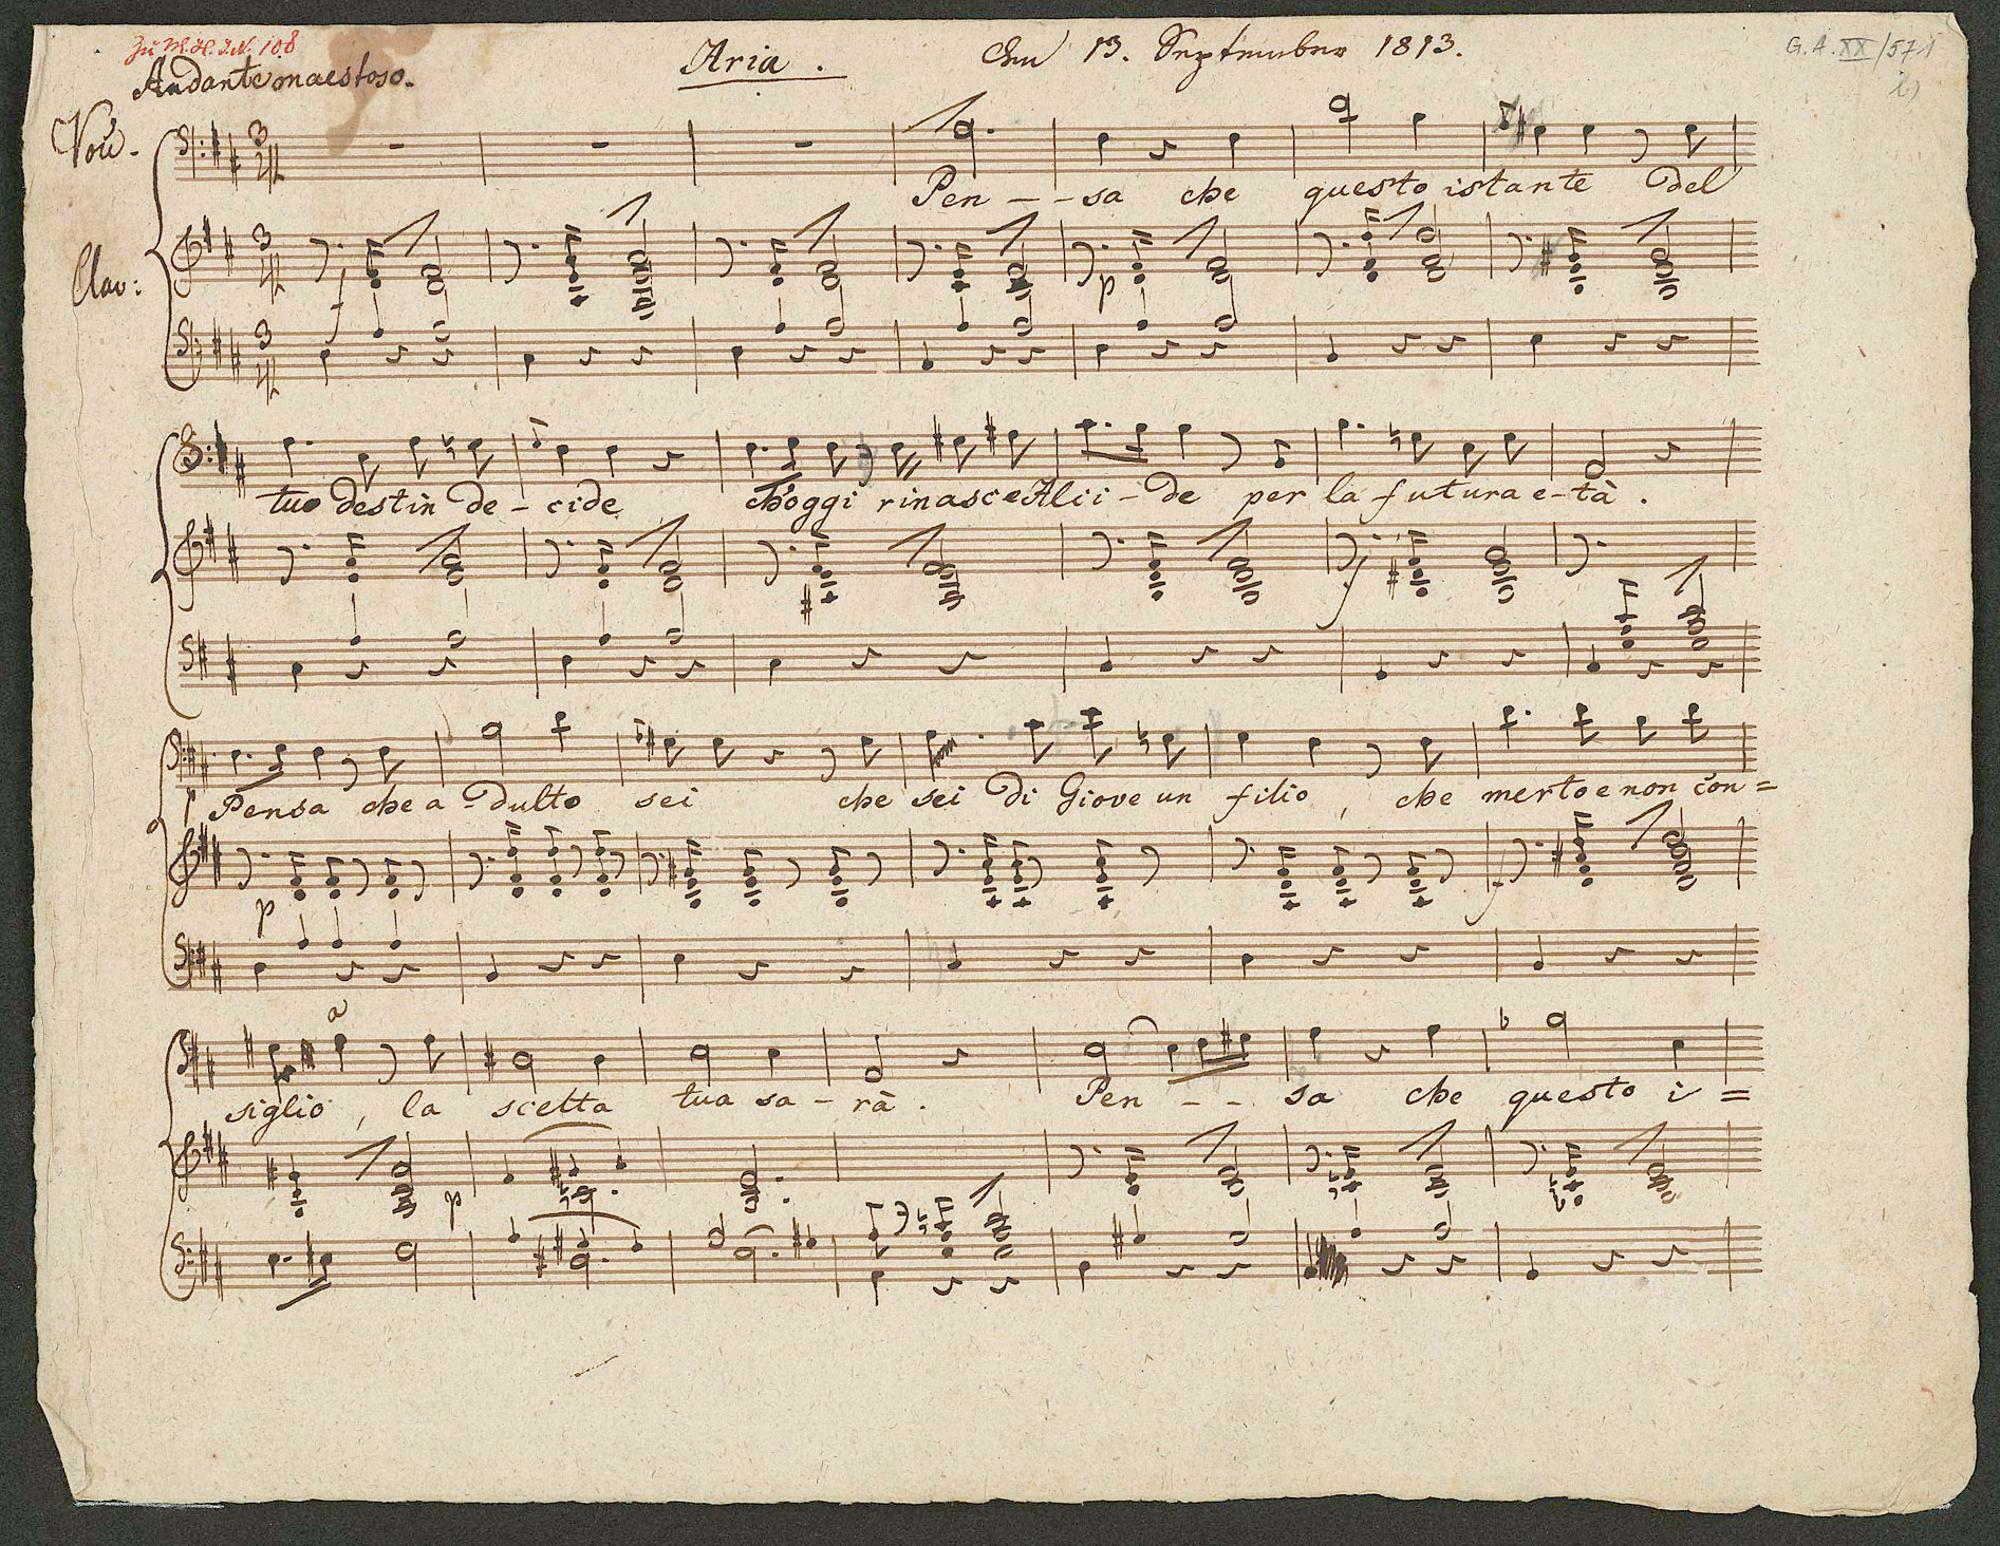 Zu M.H.I.N. 108
Aria. Den 13. September 1813. G. A. XX/571
Andante maestoso.
Voce.
Pen - - sa che questo istante del
Clav:
f p
tuo destin de - cide ch'oggi rinasce Alci - de per la futura e - tà.
f
Pensa che a - dulto sei che sei di Giove un filio, che merto e non con =
p f
a
siglio, la scelta tua sa - rà. Pen - - sa che questo i =
p